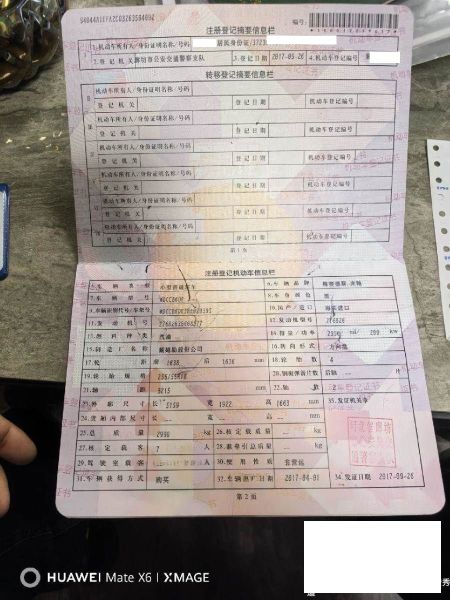 注册登记摘要信息栏
编号:
1.机动车所有人/身份证明名称/号码 居民身份证/3723
2.登记机关 廊坊市公安交通警察支队 3.登记日期 2017-09-26 4.机动车登记编号
转移登记摘要信息栏
机动车所有人/身份证明名称/号码
登记机关 登记日期 机动车登记编号
机动车所有人/身份证明名称/号码
登记机关 登记日期 机动车登记编号
机动车所有人/身份证明名称/号码
登记机关 登记日期 机动车登记编号
机动车所有人/身份证明名称/号码
登记机关 登记日期 机动车登记编号
机动车所有人/身份证明名称/号码
登记机关 登记日期 机动车登记编号
机动车所有人/身份证明名称/号码
登记机关 登记日期 机动车登记编号
第1页
注册登记机动车信息栏
5.车辆类型 小型普通客车 6.车辆品牌 梅赛德斯-奔驰
7.车辆型号 8.车身颜色 黑
9.车辆识别代号/车架号 10.国产/进口 进口
11.发动机号 12.发动机型号 276826
13.燃料种类 汽油 14.排量/功率 ml/ 200 kw
15.制造厂名称 戴姆勒股份公司 16.转向形式 方向盘
17.轮距 前 1638 后 1636 mm 18.轮胎数 4
19.轮胎规格 20.钢板弹簧片数 后轴 片
21.轴距 3215 mm 22.轴数 2
23.外廓尺寸 长 5159 宽 1922 高 1663 mm 33.发证机关章
24.货箱内部尺寸 长 宽 高 mm
25.总质量 2990 kg 26.核定载质量 kg
27.核定载客 7 人 28.准牵引总质量 kg
29.驾驶室载客 人 30.使用性质 非营运
31.车辆获得方式 购买 32.车辆出厂日期 2017-04-01 34.发证日期 2017-09-26
第2页
HUAWEI Mate X6 | XMAGE
秀